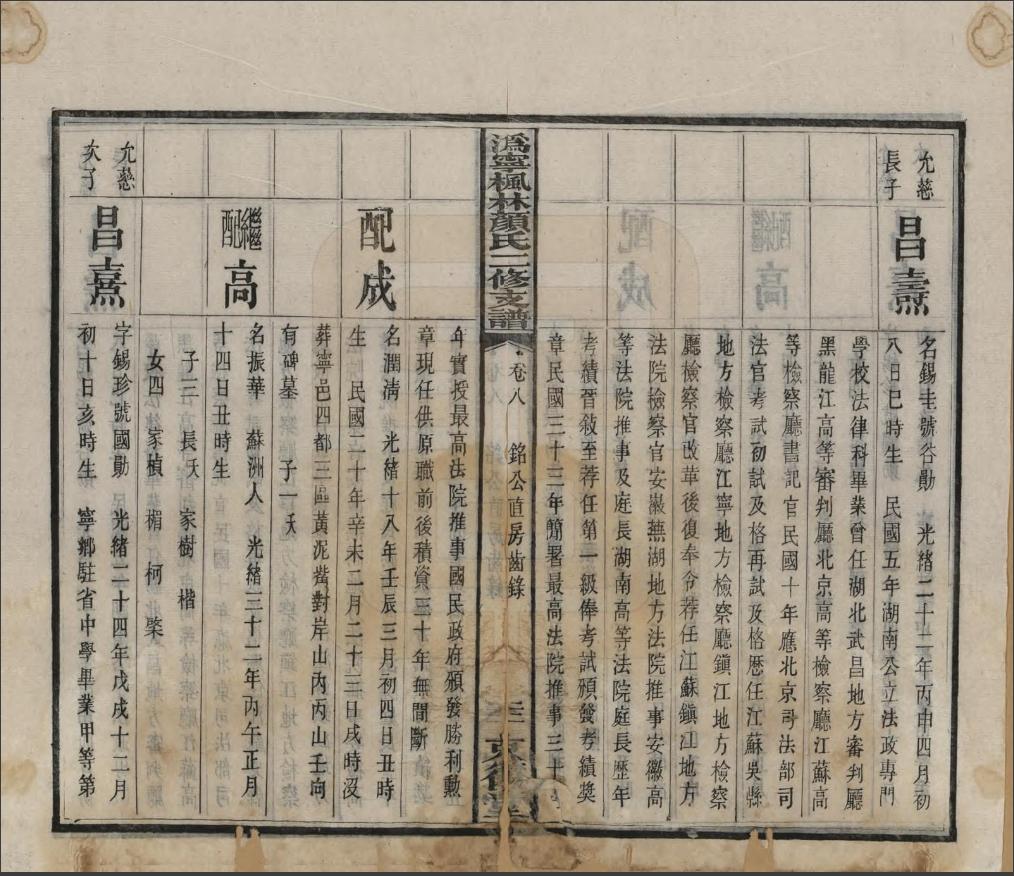 允慈
長子
昌燾
名錫圭號谷勛　光緒二十二年丙申四月初
八日巳時生　民國五年湖南公立法政專門
學校法律科畢業曾任湖北武昌地方審判廳
黑龍江高等審判廳北京高等檢察廳江蘇高
等檢察廳書記官民國十年應北京司法部司
法官考試初試及格再試及格歷任江蘇吳縣
地方檢察廳江寧地方檢察廳鎮江地方檢察
廳檢察官改革後復奉令荐任江蘇鎮江地方
法院檢察官安徽蕪湖地方法院推事安徽高
等法院推事及庭長湖南高等法院庭長歷年
考績晉敘至荐任第一級俸考試頒發考績獎
章民國三十三年簡署最高法院推事三十
溈寧楓林顏氏二修支譜
卷八　銘公直房齒錄
年實授最高法院推事國民政府頒發勝利勳
章現任供原職前後積資三十年無間斷
配成
名潤清　光緒十八年壬辰三月初四日丑時
生　民國二十年辛未二月二十三日戌時沒
葬寧邑四都三區黃泥嘴對岸山內丙山壬向
有碑墓　子一　殀
繼配高
名振華　蘇洲人　光緒三十二年丙午正月
十四日丑時生
子三　長殀　家樹　楷
女四　家楨　楣　柯　棨
允慈
次子
昌熹
字錫珍號國勛　光緒二十四年戊戌十二月
初十日亥時生　寧鄉駐省中學畢業甲等第